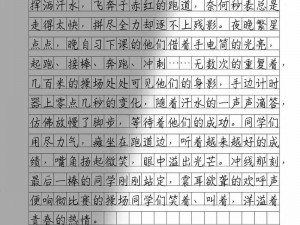 挥洒汗水，飞奔于赤红的跑道，奈何秒表总是
走得太快，拼尽全力却逐不上残影。夜晚繁星
点点，晚自习下课的他们借着手电筒的光亮，
起跑、接棒、奔跑、冲刺……无数次的重复着，
几百米的操场处处可见他们的身影，手边计时
器上零点几秒的变化，随着汗水的一声声滴答，
仿佛放慢了脚步，等待着他们的成功。同学们
用尽力气，瘫坐在跑道边，听着越来越好的成
绩，嘴角扬起微笑，眼中溢出光芒。冲线那刻，
最后一棒的同学刚刚站定，震耳欲聋的欢呼声
便响彻比赛的操场同学们笑着、叫着，洋溢着
青春的热情。